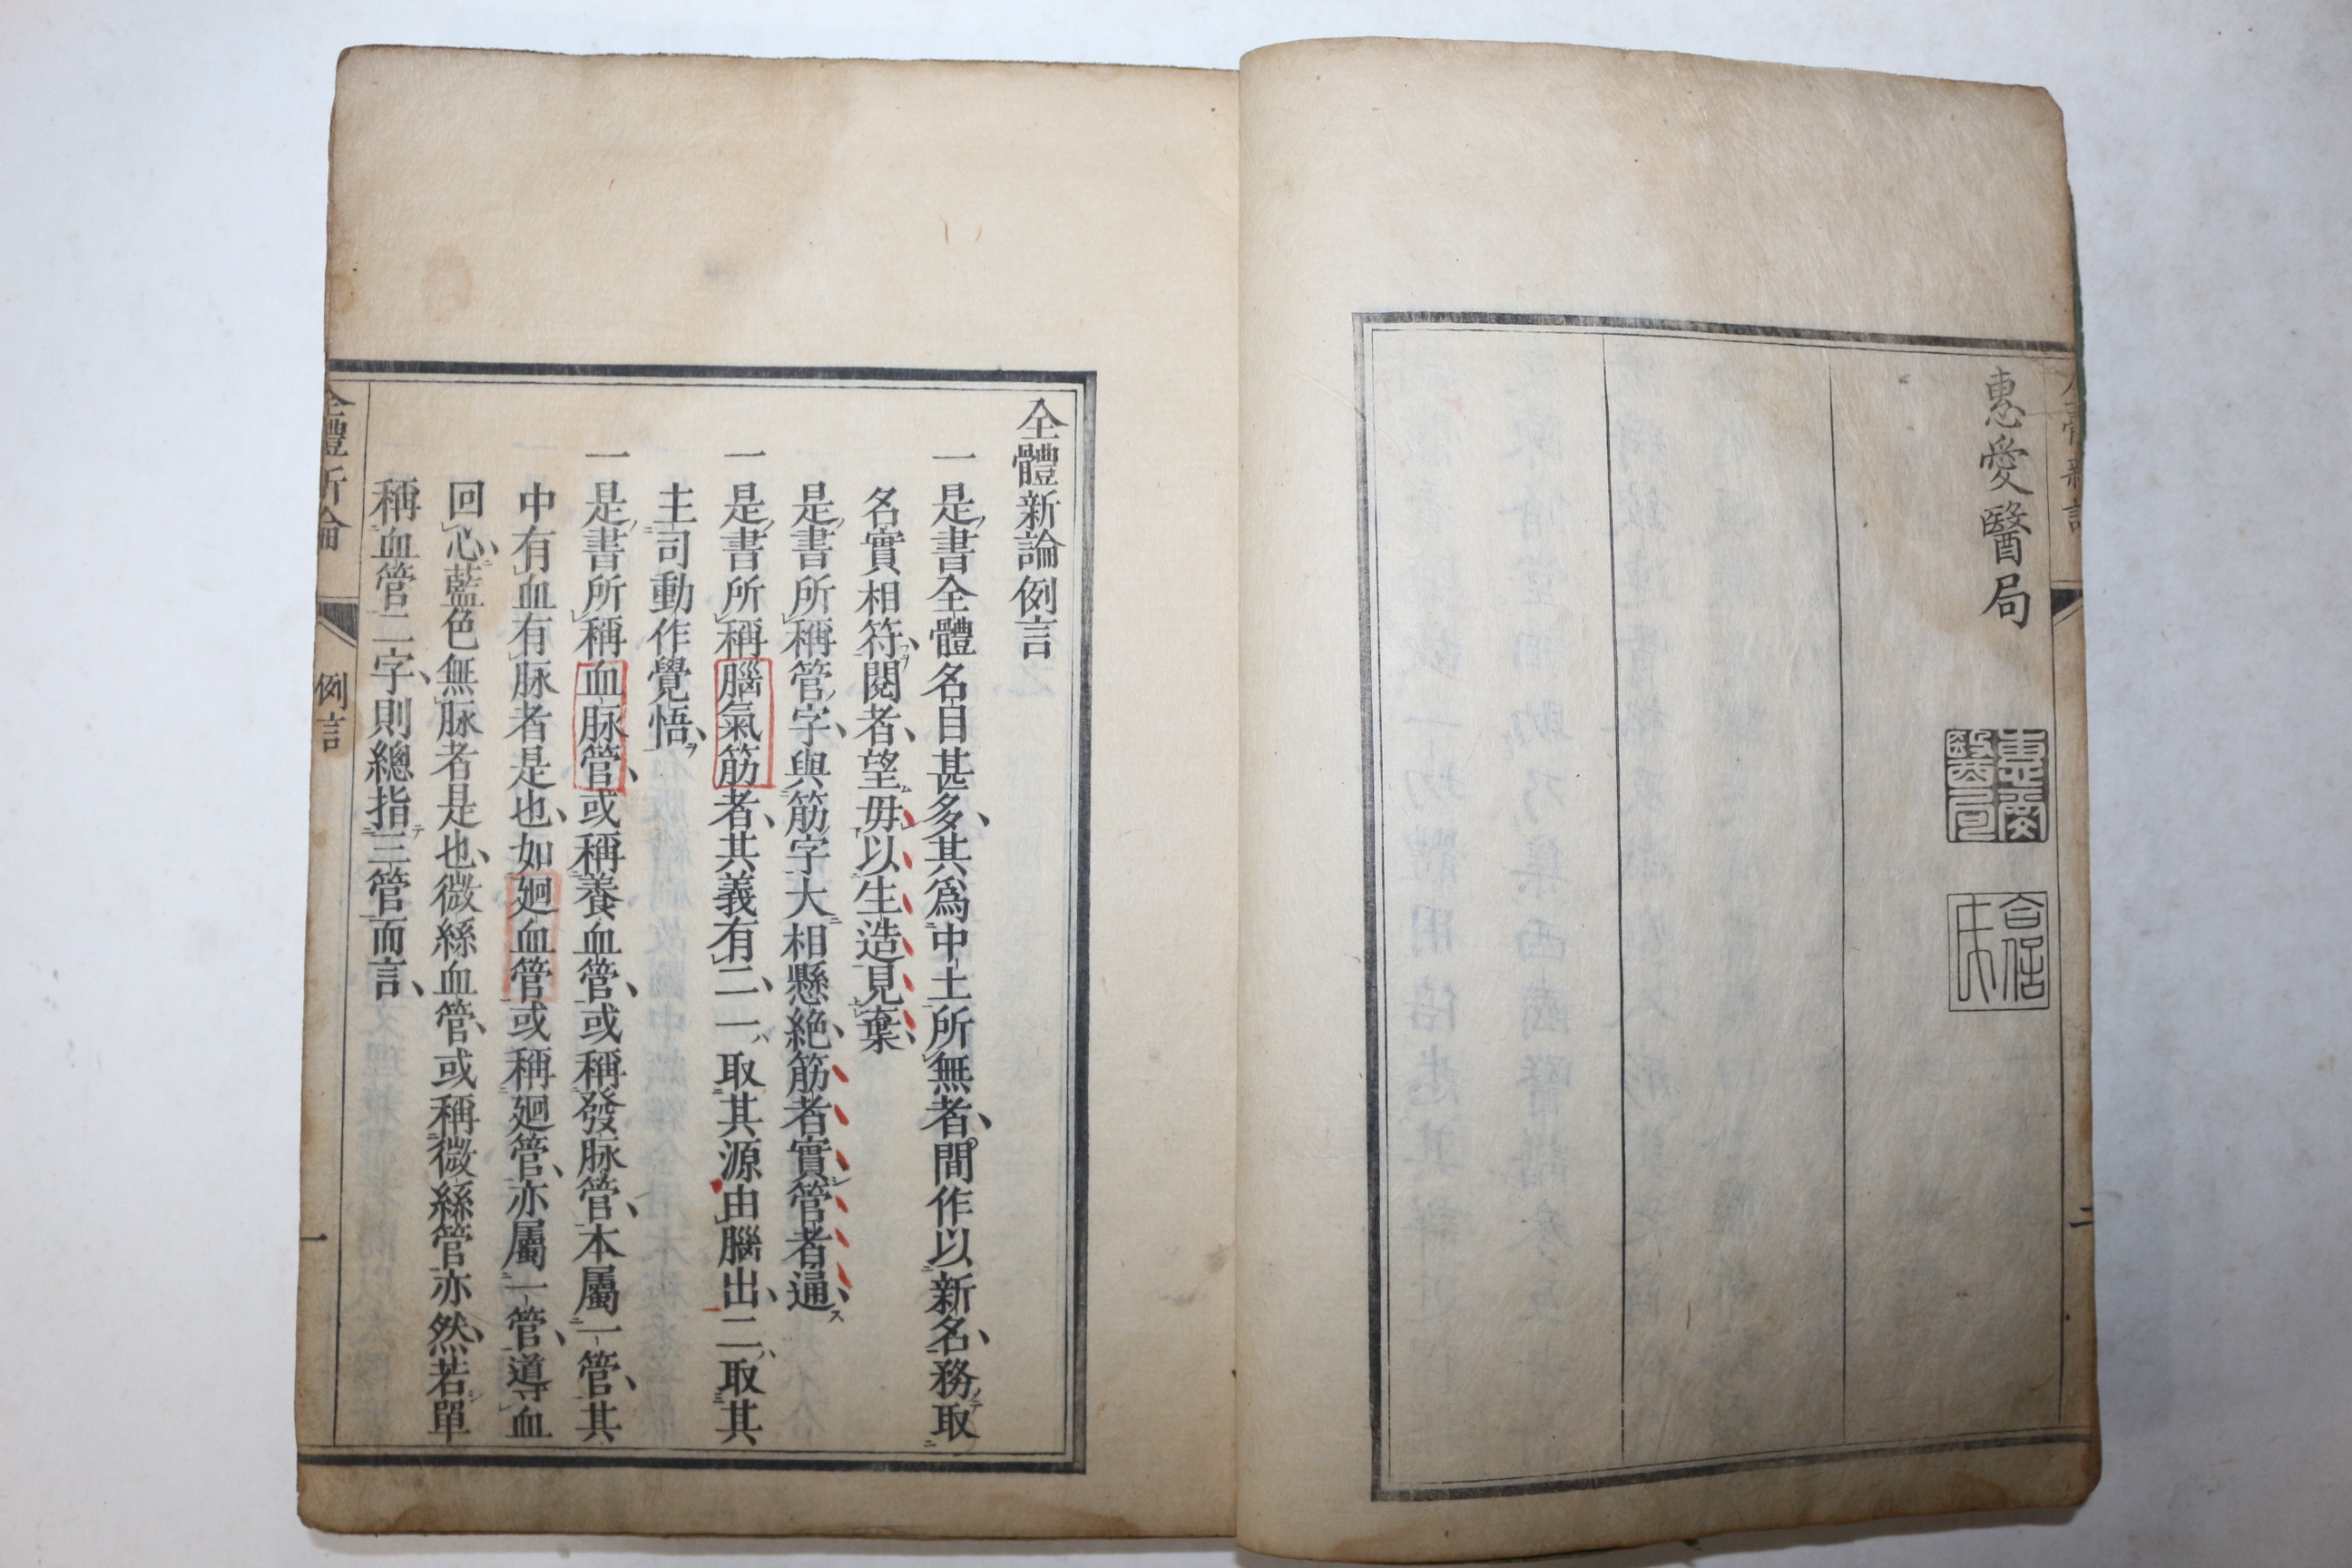 惠愛醫局
惠愛醫局
合信氏
二
全體新論例言
一是書全體名目甚多其爲中土所無者間作以新名務取
名實相符閱者望毋以生造見棄
是書所稱管字與筋字大相懸絶筋者實管者通
一是書所稱腦氣筋者其義有二一取其源由腦出二取其
主司動作覺悟
一是書所稱血脉管或稱養血管或稱發脉管本屬一管其
中有血有脉者是也如廻血管或稱廻管亦屬一管導血
回心藍色無脉者是也微絲血管或稱微絲管亦然若單
稱血管二字則總指三管而言
全體新論
例言
一